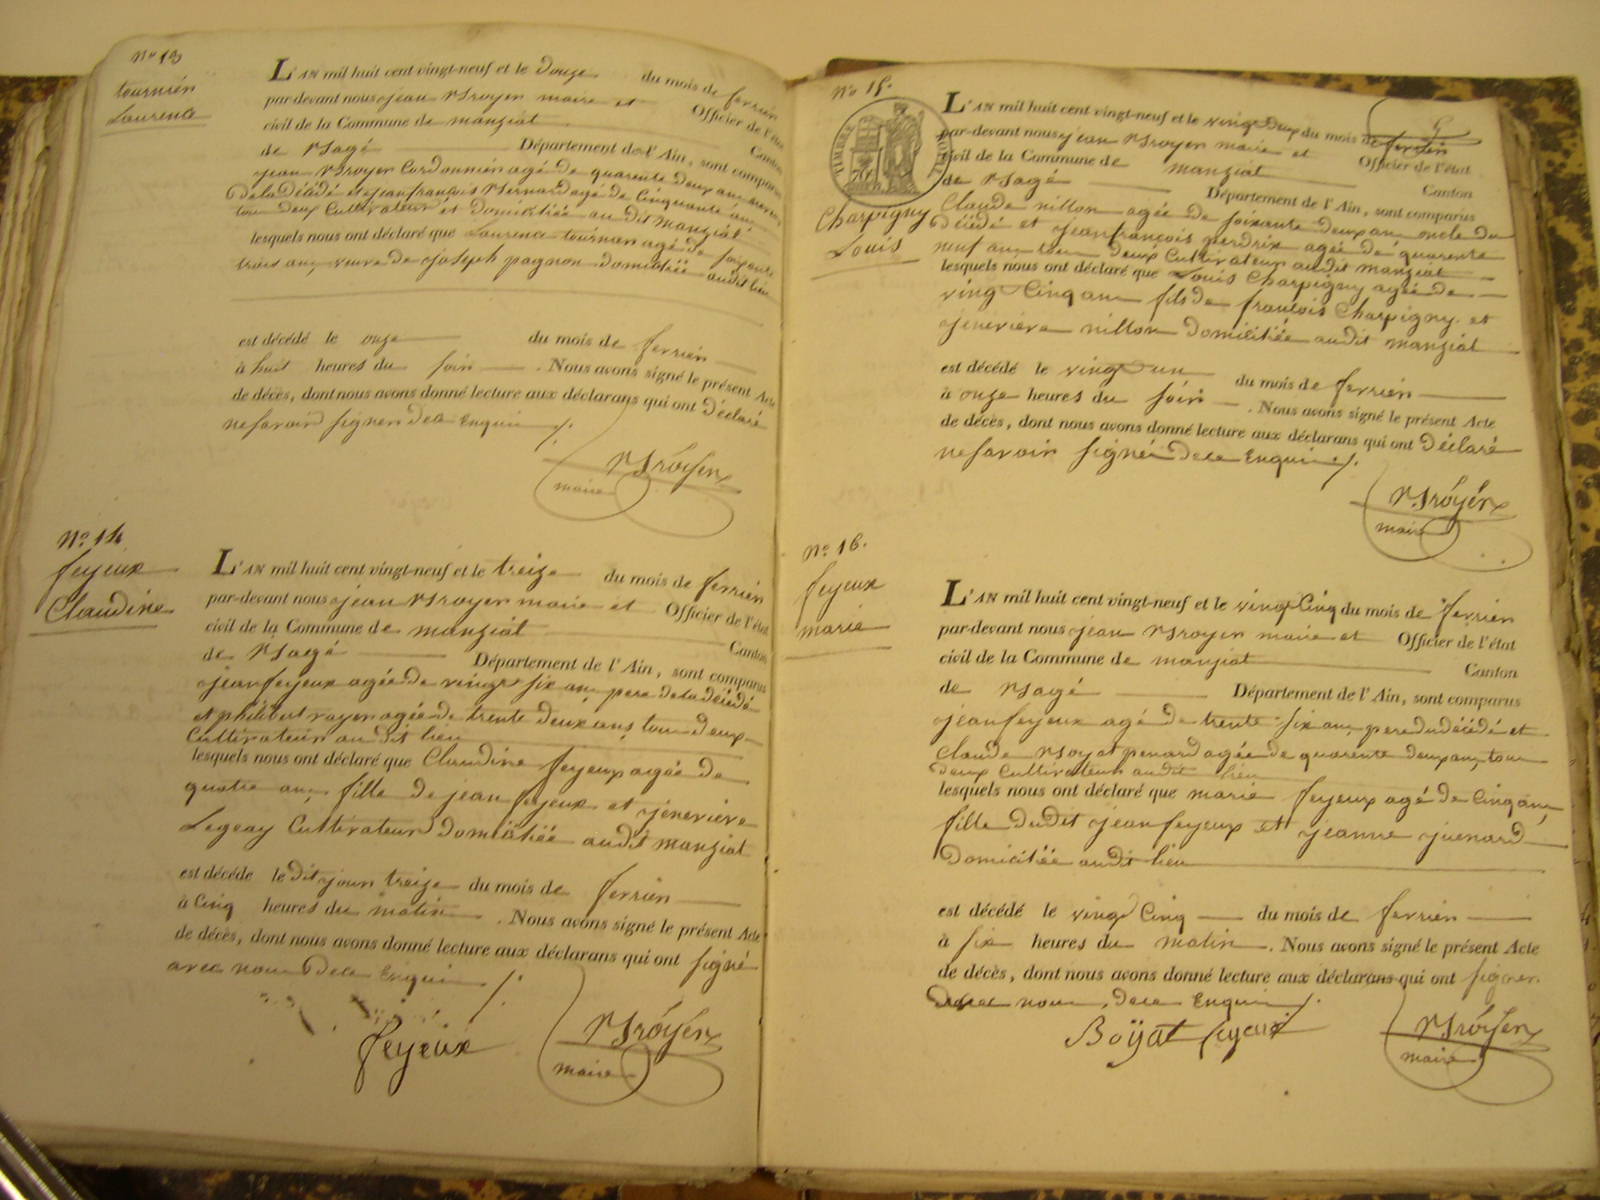 No 13
tournién
Laurence
L'AN mil huit cent vingt-neuf et le Douze du mois de ferrién
par-devant nous jean Broyer maire et Officier de l'état
civil de la Commune de manziat Canton
de Bagé Département de l'Ain, sont comparus
jean Broyer Cordonnier agé de quarente Deux ans
De la Décédé et jean françois Bernard agé de Cinquante ans
tou Deux Cultivateur et Domiciliée au dit manziat
lesquels nous ont déclaré que Laurence tournian agée de soixante
trois ans, veuve de joseph pagnon domiciliée audit lieu
est décédé le onze du mois de ferrién
à huit heures du soir . Nous avons signé le présent Acte
de décès, dont nous avons donné lecture aux déclarans qui ont Déclaré
ne savoir signer de ce Enqui
Bróyer
maire
No. 14
feyeux
Claudine
L'AN mil huit cent vingt-neuf et le treize du mois de ferrién
par-devant nous jean Broyer maire et Officier de l'état
civil de la Commune de manziat Canton
de Bagé Département de l'Ain, sont comparus
jean feyeux agée de vingt six ans pere de la décédé
et philibert rayer agée de trente deux ans, tou deux
Cultivateur au dit lieu
lesquels nous ont déclaré que Claudine feyeux agée de
quatre ans, fille de jean feyeux et jeneviève
Legeay Cultivateur Domiciliée audit manziat
est décédé le dit jour treize du mois de ferrién
à Cinq heures du matin . Nous avons signé le présent Acte
de décès, dont nous avons donné lecture aux déclarans qui ont signé
avec nous De ce Enqui
feyeux
Bróyer
maire
No 15.
TIMBRE ROYAL
Charpigny
Louis
L'AN mil huit cent vingt-neuf et le vingt Deux du mois de ferrién
par-devant nous jean Broyer maire et Officier de l'état
civil de la Commune de manziat Canton
de Bagé Département de l'Ain, sont comparus
Claude nillon agée de soixante deux ans oncle du
Décédé et jean françois perdrix agée de quarente
neuf ans, tou deux Cultivateur audit manziat
lesquels nous ont déclaré que Louis Charpigny agée de
vingt Cinq ans fils de françois Charpigny et
jenevieve nillon Domiciliée audit manziat
est décédé le vingt un du mois de ferrién
à onze heures du soir . Nous avons signé le présent Acte
de décès, dont nous avons donné lecture aux déclarans qui ont Déclaré
ne savoir signé De ce Enqui
Bróyer
maire
No. 16.
feyeux
marie
L'AN mil huit cent vingt-neuf et le vingt Cinq du mois de ferrién
par-devant nous jean Broyer maire et Officier de l'état
civil de la Commune de manziat Canton
de Bagé Département de l'Ain, sont comparus
jean feyeux agé de trente six ans, pere du décédé et
Claude Boyat penard agée de quarente deux ans, tou
deux Cultivateur audit lieu
lesquels nous ont déclaré que marie feyeux agé de Cinq ans,
fille dudit jean feyeux et jeanne juenard
Domiciliée audit lieu
est décédé le vingt Cinq du mois de ferrién
à six heures du matin . Nous avons signé le présent Acte
de décès, dont nous avons donné lecture aux déclarans qui ont signer
avec nous, De ce Enqui
Boÿat feyeux
Bróyer
maire